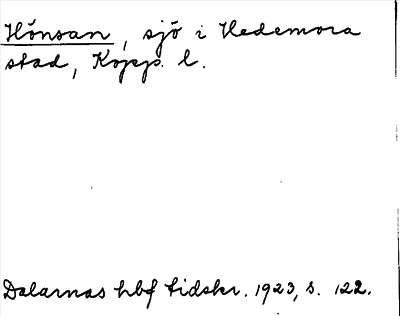 Hönsan, sjö i Hedemora
stad, Kopp. l.
Dalarnas hbf tidskr. 1923, s. 122.